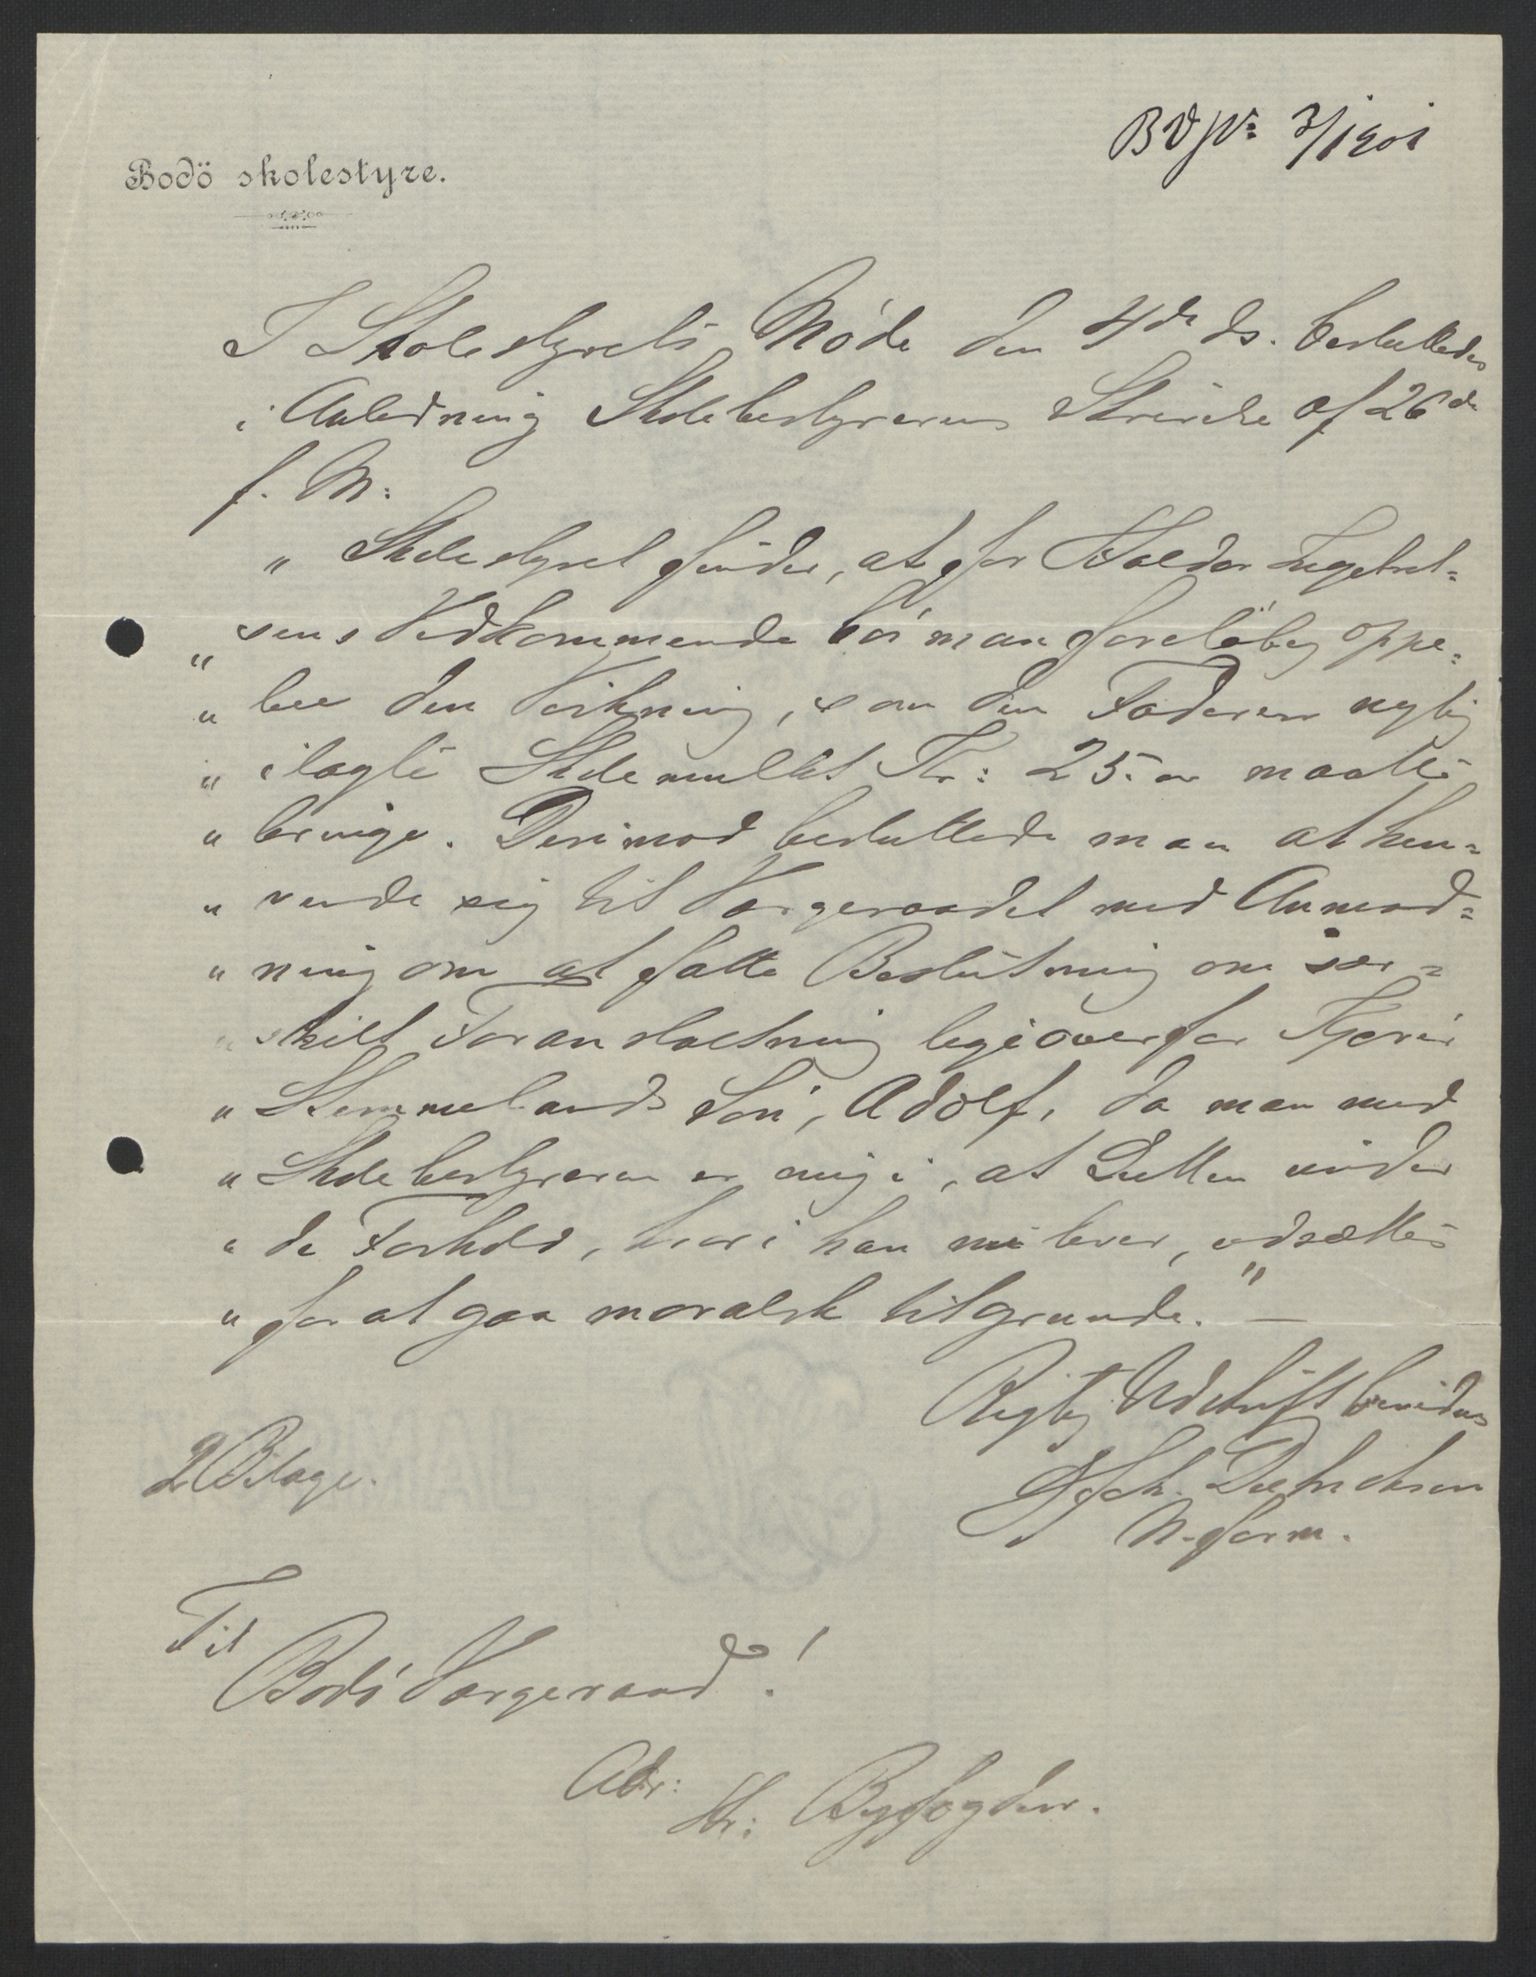 BVJNo 3/1901
Bodö skolestyre.
I Skolestyrets Møde den 4de ds. besluttedes
i Anledning Skolebestyrerens Skrivelse af 26de
f. M:
" Skolestyret finder, at for Haldor Ingebret=
" sens Vedkommende bör man foreløbig oppe=
" bie den Virkning, som den Faderen nylig
" ilagte Skolemulkt Kr: 25.00 maatte
" bringe. Derimod besluttede man at hen=
" vende sig til Vergeraadet med Anmod=
" ning om at fatte Beslutning om sær=
" skilt Foranstaltning ligeoverfor
" Stemmelands Søn, Adolf, da man med
" Skolebestyreren er enig i, at Gutten under
" de Forhold, hvori han nu lever, udsættes
" for at gaa moralsk tilgrunde." —
Rigtig Udskrift bevidnes
N. form.
2 Bilage.
Til
Bodö Vergeraad!
Adr:
Hr: Byfogden.